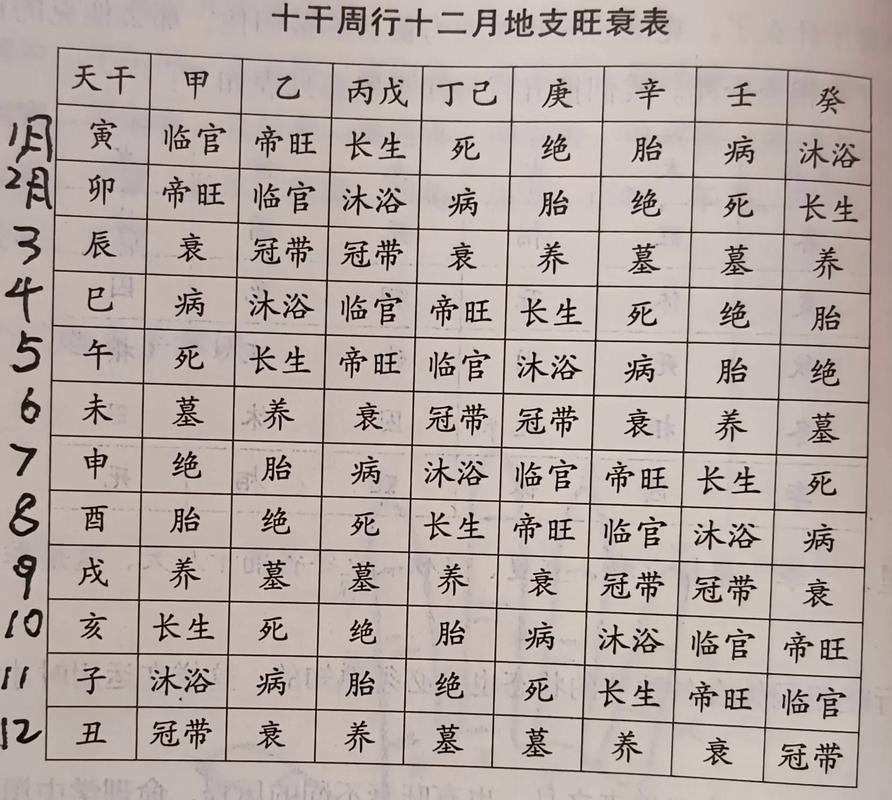 十干周行十二月地支旺衰表
天干 甲 乙 丙戊 丁己 庚 辛 壬 癸
1月 寅 临官 帝旺 长生 死 绝 胎 病 沐浴
2月 卯 帝旺 临官 沐浴 病 胎 绝 死 长生
3 辰 衰 冠带 冠带 衰 养 墓 墓 养
4 巳 病 沐浴 临官 帝旺 长生 死 绝 胎
5 午 死 长生 帝旺 临官 沐浴 病 胎 绝
6 未 墓 养 衰 冠带 冠带 衰 养 墓
7 申 绝 胎 病 沐浴 临官 帝旺 长生 死
8 酉 胎 绝 死 长生 帝旺 临官 沐浴 病
9 戌 养 墓 墓 养 衰 冠带 冠带 衰
10 亥 长生 死 绝 胎 病 沐浴 临官 帝旺
11 子 沐浴 病 胎 绝 死 长生 帝旺 临官
12 丑 冠带 衰 养 墓 墓 养 衰 冠带